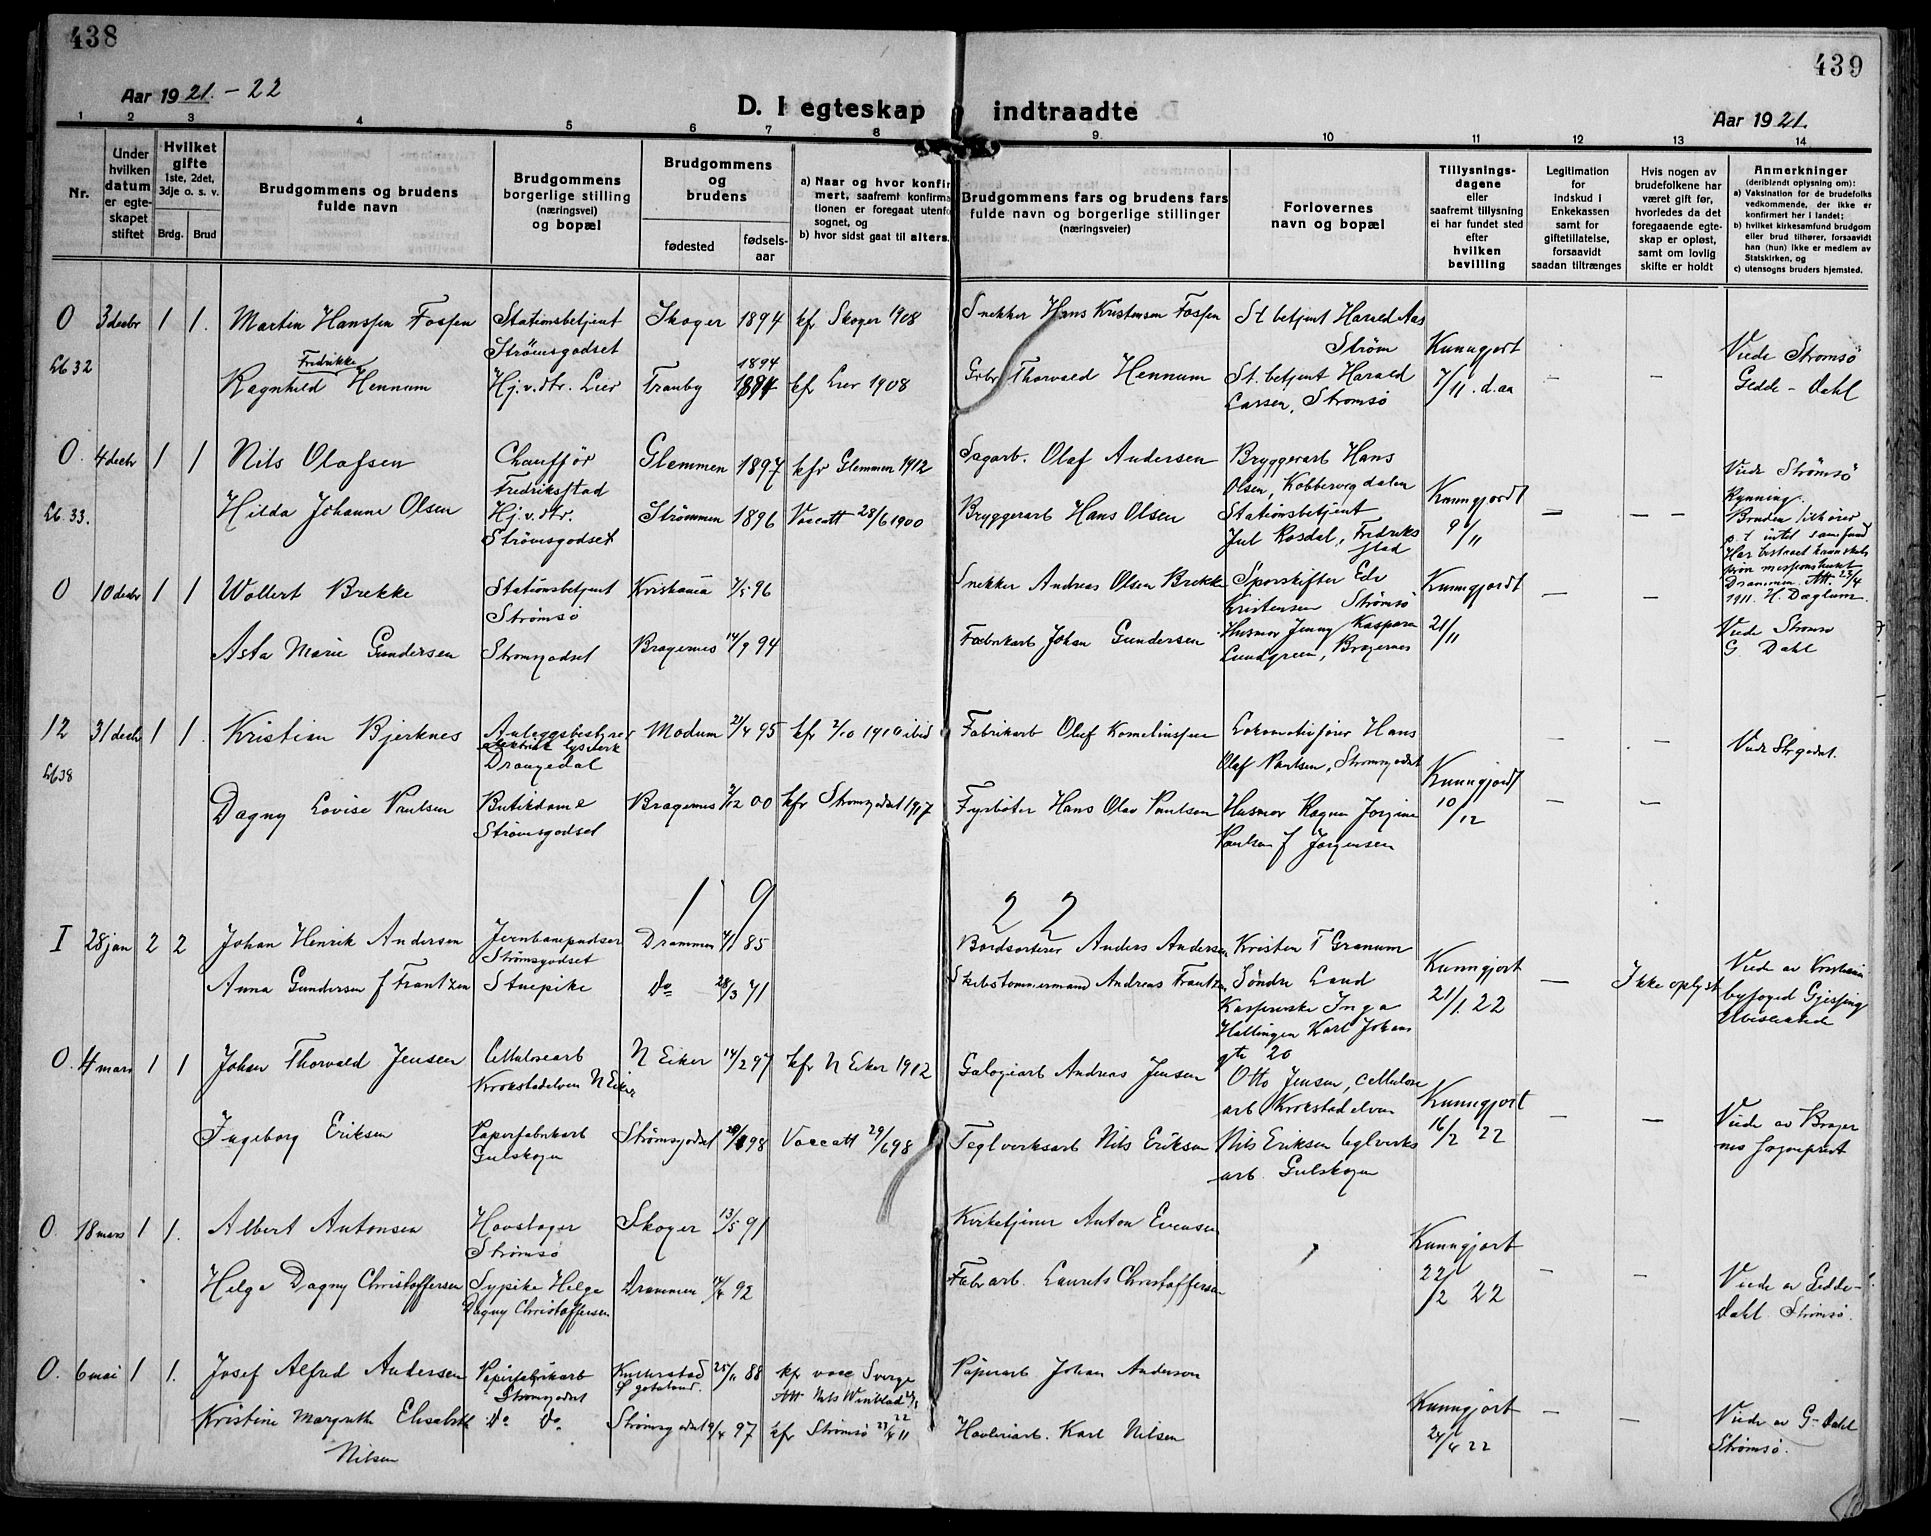 438
439
Aar 1921.-22
D. I egteskap indtraadte
Aar 1921.
1 2 3 4 5 6 7 8 9. 10 11 12 13 14
Nr.
Under hvilken datum er egteskapet stiftet
Hvilket gifte
1ste, 2det, 3dje o. s. v.
Brdg. Brud
Brudgommens og brudens fulde navn
Brudgommens borgerlige stilling (næringsvei) og bopæl
Brudgommens og brudens
fødested
fødsels-aar
a) Naar og hvor konfirmert, saafremt konfirmationen er foregaat utenfo sognet, og
b) hvor sidst gaat til alters.
Brudgommens fars og brudens fars fulde navn og borgerlige stillinger (næringsveier)
Forlovernes navn og bopæl
Tillysningsdagene eller saafremt tillysning ei har fundet sted efter hvilken bevilling
Legitimation for indskud i Enkekassen samt for giftetillatelse, forsaavidt saadan tiltrænges
Hvis nogen av brudefolkene har været gift før, hvorledes da det foregaaende egteskap er opløst, samt om lovlig skifte er holdt
Anmerkninger
(deriblandt oplysning om):
a) Vaksination for de brudefolks vedkommende, der ikke er konfirmert her i landet;
b) hvilket kirkesamfund brudgom eller brud tilhører, forsaavidt han (hun) ikke er medlem av Statskirken, og
c) utensogns bruders hjemsted.
0 3 decbr 1 1. Martin Hanssen Fossen Stationsbetjent Skoger 1894 kf Skoger 1908 Snekker Hans Kristensen Fossen St betjent Harald Aas
Strømsgodset Strøm Kunngjort Viede Strømsø
Lb 32 Fredrikke 1894
Ragnhild Hennum Hj.v.dtr. Lier Tranby 1894 kf Lier 1908 Grbr Thorvald Hennum St. betjent Harald 7/11. d.aa — — Gedde-Dahl
Larsen, Strømsø
0. 4 decbr 1 1 Nils Olafsen Chauffør Glemmen 1897 kfr Glemmen 1912 Sagarb. Olaf Andersen Bryggerarb Hans Viede Strømsø
Fredriksstad Olsen, Kobbervigdalen Kunngjordt Rynning.
Lb. 33. Hilda Johanne Olsen Hj.v.dtr. Strømmen 1896 Vaccatt 28/6 1900 Bryggerarb Hans Olsen Stationsbetjent — — — Bruden tilhører
Strømsgodset Jul Rosdal, Fredriksstad 9/11 p. t intet samfund
Drammen. Att. 23/4
1911. H. Daglum.
0 10 decbr 1 1 Wollert Brekke Stationsbetjent Kristiania 7/5 96 Snekker Andreas Olsen Brekke Sporskifter Edv Kunngjordt — —
Strømsø Kristensen Strømsø
Asta Marie Gundersen Strømsgodset Bragernes 14/9 94 Fabrikarb Johan Gundersen Husmor Jenny Kaspara 21/11 Viede Strømsø
Lundgreen, Bragernes G. Dahl
12 31 decbr 1 1. Kristian Bjerknes Anlægsbestyrer Modum 21/4 95 kfr 2/10 1910 ibid Fabrikarb Olef Kornelinssen Lokomotivfører Hans — — Viede Strgodset.
Lb 38 Drangedal Olaf Paulsen, Strømsgodset Kunngjordt
Dagny Lovise Paulsen Butikdame Bragernes 2/12 00 kfr Strømsgodset 1917 Fyrbøter Hans Olav Paulsen Husmor Ragna Jorgine 10/12 — —
Strømsgodset Paulsen f Jørgensen
1 9 2 2
I 28 jan 2 2 Johan Henrik Andersen Jernbanepudser Drammen 7/1 85 Bordsorterer Anders Andersen Kristen T Granum Kunngjort
Strømsgodset
Anna Gundersen f Frantzen Stuepike Do 28/3 71 Skibstømmermand Andreas Frantzen Søndre Land 21/1. 22 — Ikke oplyst Viede av Kristiania
Inga byfoged
Hallingen Karl Johans
gte 20
0. 4 mars 1 1 Johan Thorvald Jensen Cellulosearb N Eiker 14/2 97 kfr N Eiker 1912 Andreas Jensen Otto Jensen, cellulose
Krokstadelven N Eiker arb Krokstadelven Kunngjort — — Viede av Brager
Ingeborg Eriksen Papirfabrikarb Strømsgodset 98 Vaccatt 29/6 98 Teglverksarb Nils Eriksen Nils Eriksen teglverks 16/2 22 nes Sogneprest
Gulskogen arb. Gulskogen
0. 18 mars 1 1. Albert Antonsen Skoger 13/5 91 Kirketjener Anton Evensen Kunngjort
Strømsø
Helga Dagny Christoffersen Sypike Helga Drammen 92 Fabr arb. Laurits Christoffersen 22/2 22 — — Viede av Gedde-
Dagny Christoffersen Dahl Strømsø.
0. 6 mai 1 1. Josef Alfred Andersen Papirfabrikarb 25/11 88 kf vacc Sverge Papirarb Johan Anderson
Strømsgodset Att Nils Winblad Kunngjort — — Viede av G-Dahl
Kristine Margrethe Elisabeth Do Do Strømsgodset 9/4 97 kfr Strømsø Høvleriarb. Karl Nilsen 24/4 22 Strømsø.
Nilsen